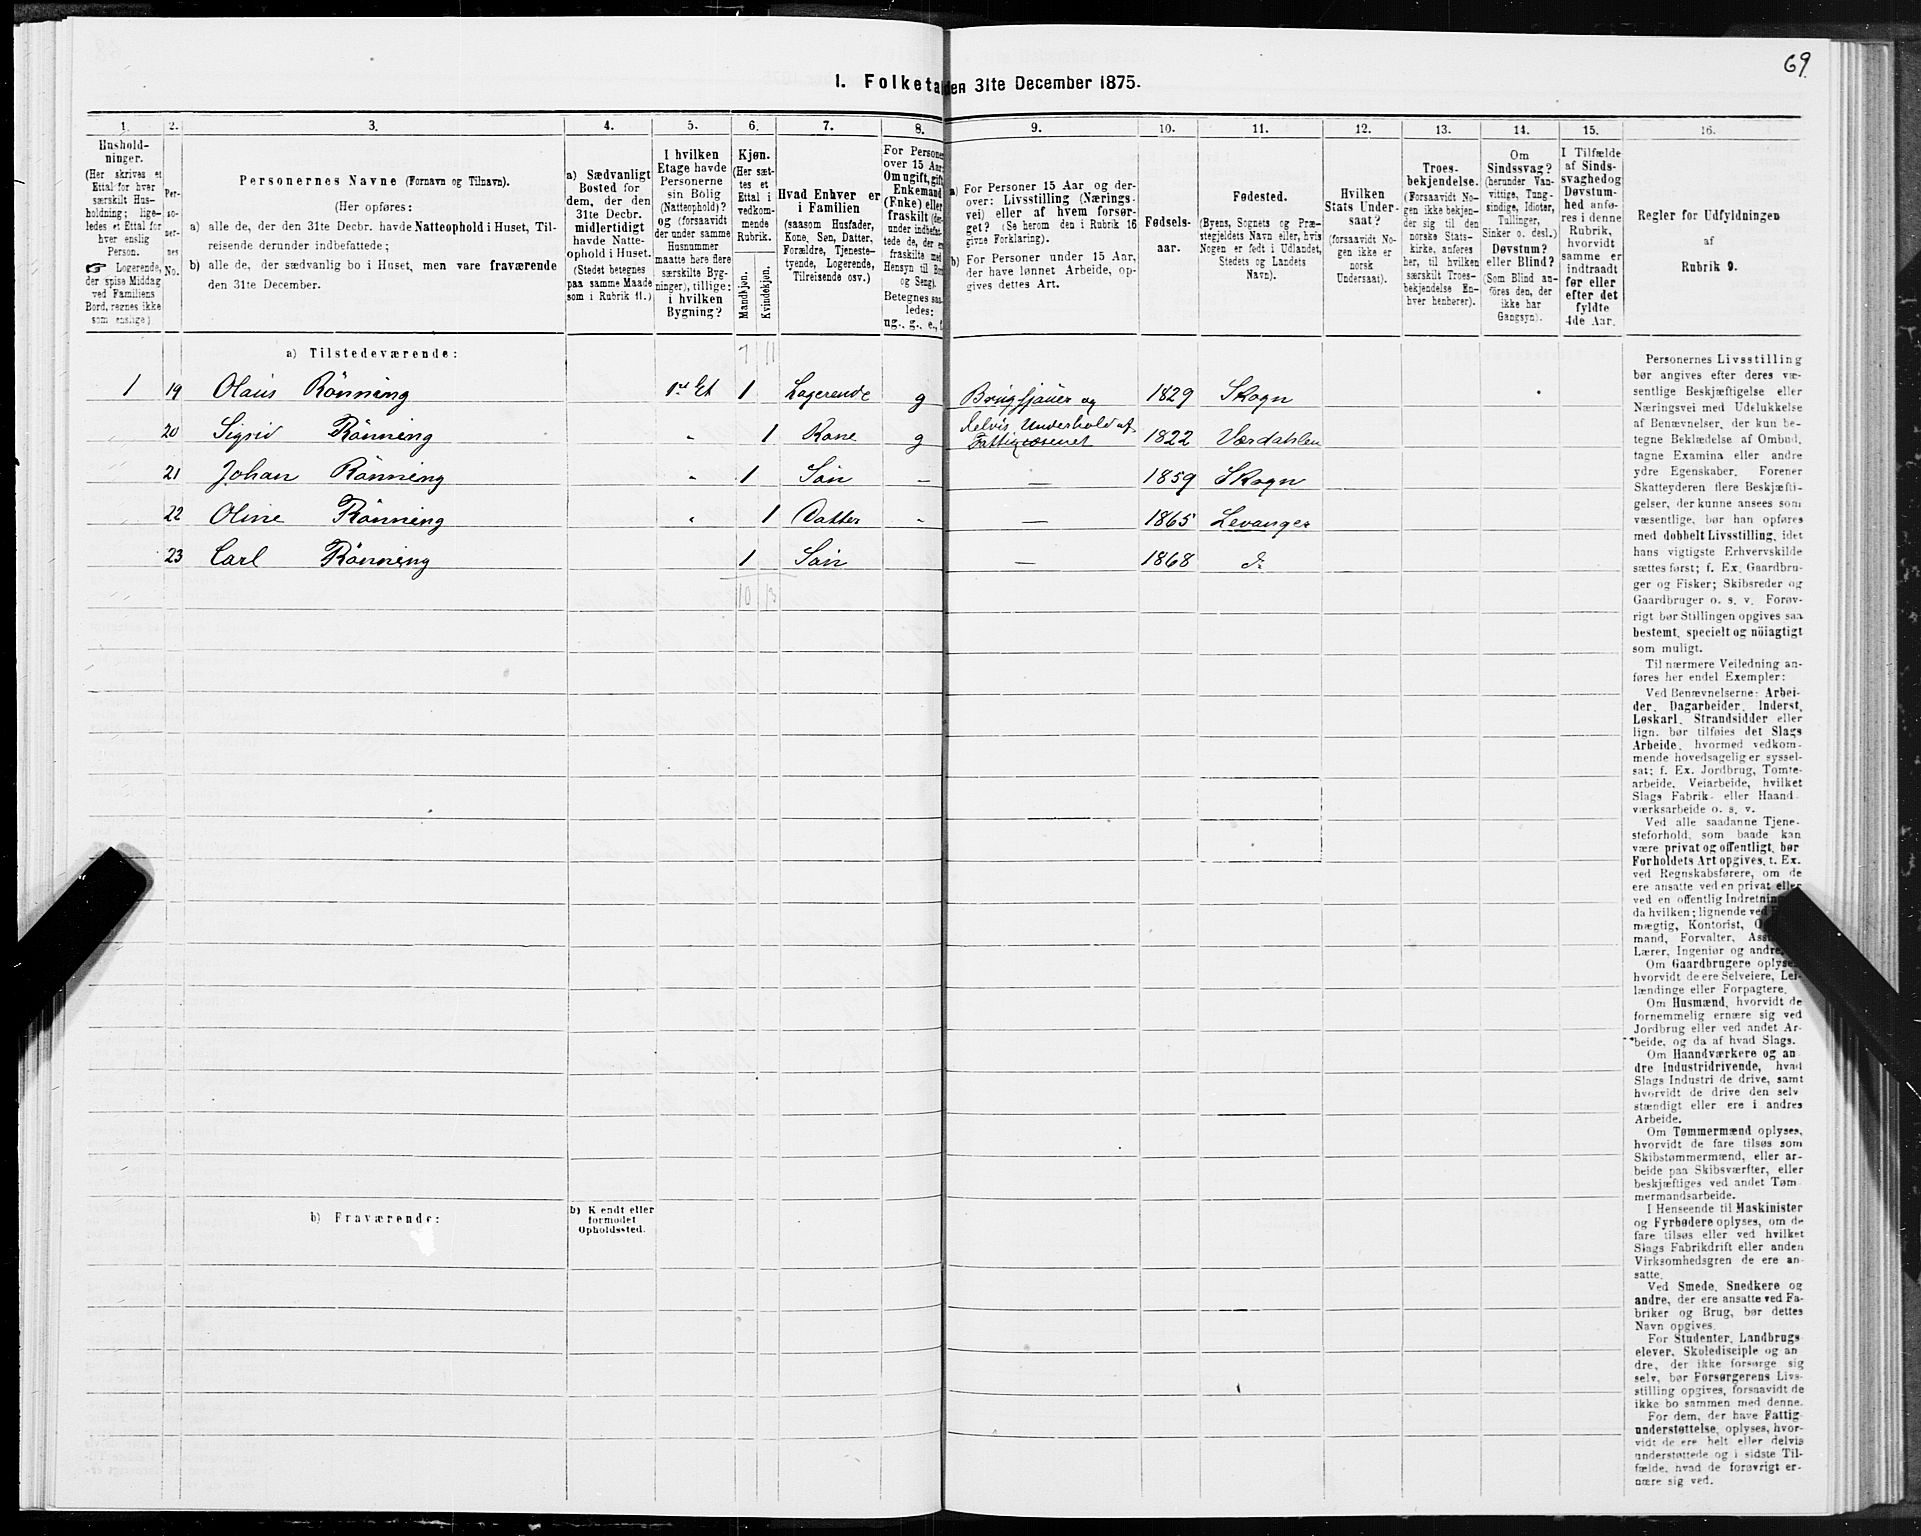 69
I. Folketa den 31te December 1875.
1. 2. 3. 4. 5. 6. 7. 8. 9. 10. 11. 12. 13. 14. 15. 16.
Hushold-
ninger.
(Her skrives et
Ettal for hver
særskilt Hus-
holdning; lige-
ledes et Ettal for
hver enslig
Person.
☞ Logerende,
der spise Middag
ved Familiens
Bord, regnes ikke
som enslige)
Per-
so-
ner-
nes
No.
Personernes Navne (Fornavn og Tilnavn).
(Her opføres:
a) alle de, der den 31te Decbr. havde Natteophold i Huset, Til-
reisende derunder indbefattede;
b) alle de, der sædvanlig bo i Huset, men vare fraværende
den 31te December.
a) Sædvanligt
Bosted for
dem, der den
31te Decbr.
midlertidigt
havde Natte-
ophold i Huset.
(Stedet betegnes
paa samme Maade
som i Rubrik 11.)
I hvilken
Etage havde
Personerne
sin Bolig
(Natteophold)?
og (forsaavidt
der under samme
Husnummer
maatte høre flere
særskilte Byg-
ninger), tillige:
i hvilken
Bygning?
Kjøn.
(Her sæt-
tes et
Ettal i
vedkom-
mende
Rubrik.
Mandkjøn.
Kvindekjøn.
Hvad Enhver er
i Familien
(saasom Husfader,
Kone, Søn, Datter,
Forældre, Tjeneste-
tyende, Logerende,
Tilreisende osv.)
For Persone
over 15 Aar
Om ugift, gift,
Enkemand
(Enke) eller
fraskilt (der-
under indbefat-
tede de, der er
fraskilte med
Hensyn til Bo
og Seng).
Betegnes saa-
ledes:
ug., g., e., f.
a) For Personer 15 Aar og der-
over: Livsstilling (Nærings-
vei) eller af hvem forsør-
get? (Se herom den i Rubrik 16
givne Forklaring).
b) For Personer under 15 Aar,
der have lønnet Arbeide, op-
gives dettes Art.
Fødsels-
aar.
Fødested.
(Byens, Sognets og Præ-
stegjeldets Navn eller, hvis
Nogen er født i Udlandet,
Stedets og Landets
Navn).
Hvilken
Stats Under-
saat?
(forsaavidt No-
gen ikke er
norsk
Undersaat).
Troes-
bekjendelse.
(Forsaavidt No-
gen ikke bekjen-
der sig til den
norske Stats-
kirke, anføres
her, til hvilken
særskilt Troes-
bekjendelse En-
hver henhører).
Om
Sindssvag?
(herunder Van-
vittige, Tung-
sindige, Idioter,
Tullinger,
Sinker o. desl.)
Døvstum?
eller Blind?
(Som Blind an-
føres den, der
ikke har
Gangsyn).
I Tilfælde
af Sinds-
svaghedog
Døvstum-
hed anfø-
res i denne
Rubrik,
hvorvidt
samme er
indtraadt
før eller
efter det
fyldte
4de Aar.
Regler for Udfyldningen
af
Rubrik 9.
a) Tilstedeværende:
7 11
1 19 Olaus Rönning 1st Et 1 Logerende g Brugsfjøler og 1829 Skogn
20 Sigrid Rönning " 1 Kone g delvis Underhold af Fattigvæsenet 1822 Værdahlen
21 Johan Rönning " 1 Sön - — 1859 Skogn
22 Oline Rönning " 1 Datter - — 1865 Levanger
23 Carl Rönning 1 Sön — 1868 d:
10 13
b) Fraværende:
b) Kjendt eller
formodet
Opholdssted.
Personernes Livsstilling
bør angives efter deres væ-
sentlige Beskjæftigelse eller
Næringsvei med Udelukkelse
af Benævnelser, der kun be-
tegne Beklædelse af Ombud,
tagne Examina eller andre
ydre Egenskaber. Forener
Skatteyderen flere Beskjæfti-
gelser, der kunne ansees som
væsentlige, bør han opføres
med dobbelt Livsstilling, idet
hans vigtigste Erhvervskilde
sættes først; f. Ex. Gaardbru-
ger og Fisker; Skibsreder og
Gaardbruger o. s. v. Forøv-
rigt bør Stillingen opgives saa
bestemt, specielt og nöiagtigt
som muligt.
Til nærmere Veiledning an-
føres her endel Exempler:
Ved Benævnelserne: Arbei-
der, Dagarbeider, Inderst,
Løskarl, Strandsidder eller
lign. bør tilføies det Slags
Arbeide, hvormed vedkom-
mende hovedsagelig er syssel-
sat; f. Ex. Jordbrug, Tomte-
arbeide, Veiarbeide, hvilket
Slags Fabrik- eller Haand-
værksarbeide o. s. v.
Ved alle saadanne Tjene-
steforhold, som baade kan
være privat og offentligt, bør
Forholdets Art opgives, t. Ex.
ved Regnskabsførere, om de
ere ansatte ved en privat eller
ved en offentlig Indretnin
da hvilken; lignende ved
mægtig, Kontorist, O
mand, Forvalter, Ass
Lærer, Ingeniør og andre
Om Gaardbrugere oplyse
hvorvidt de ere Selveiere, Lei-
lændinge eller Forpagtere.
Om Husmænd, hvorvidt de
fornemmelig ernære sig ved
Jordbrug eller ved andet Ar-
beide, og da af hvad Slags.
Om Haandværkere og an
dre Industridrivende, hvad
Slags Industri de drive, samt
hvorvidt de drive den selv
stændigt eller ere i andres
Arbeide.
Om Tømmermænd oplyses,
hvorvidt de fare tilsøs som
Skibstømmermænd, eller ar-
beide paa Skibsværfter, eller
beskjæftiges ved andet Tøm
mermandsarbeide.
I Henseende til Maskinister
og Fyrbødere oplyses, om de
fare tilsøs eller ved hvilket
Slags Fabrikdrift eller anden
Virksomhedsgren de ere an-
satte.
Ved Smede, Snedkere og
andre, der ere ansatte ved Fa-
briker og Brug, bør dettes
Navn opgives.
For Studenter, Landbrugs
elever, Skoledisciple og an
dre, der ikke forsørge sig
selv, bør Forsørgerens Livs-
stilling opgives, forsaavidt de
ikke bo sammen med denne.
For dem, der have Fattig-
understøttelse, oplyses, hvor-
vidt de ere helt eller delvis
understøttede og i sidste Til-
fælde, hvad de forøvrigt er-
nære sig ved.